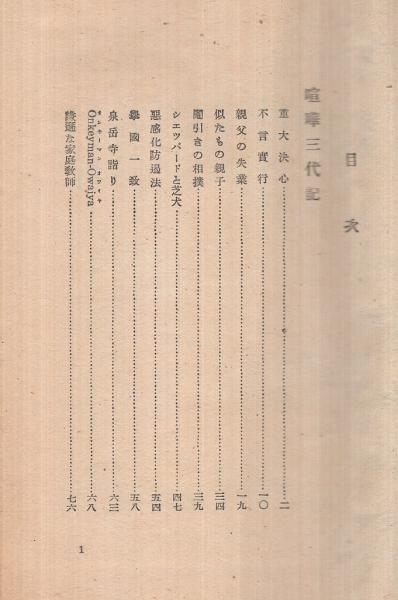 目次
喧嘩三代記
重大決心………二
不言實行………一〇
親父の失業………一九
似たもの親子………三四
闇引きの相撲………三九
シエツパードと芝犬………四七
惡感化防遏法………五四
擧國一致………五八
泉岳寺詣り………六三
Onkeyman-Owajya………六八
な家庭敎師………七六
1